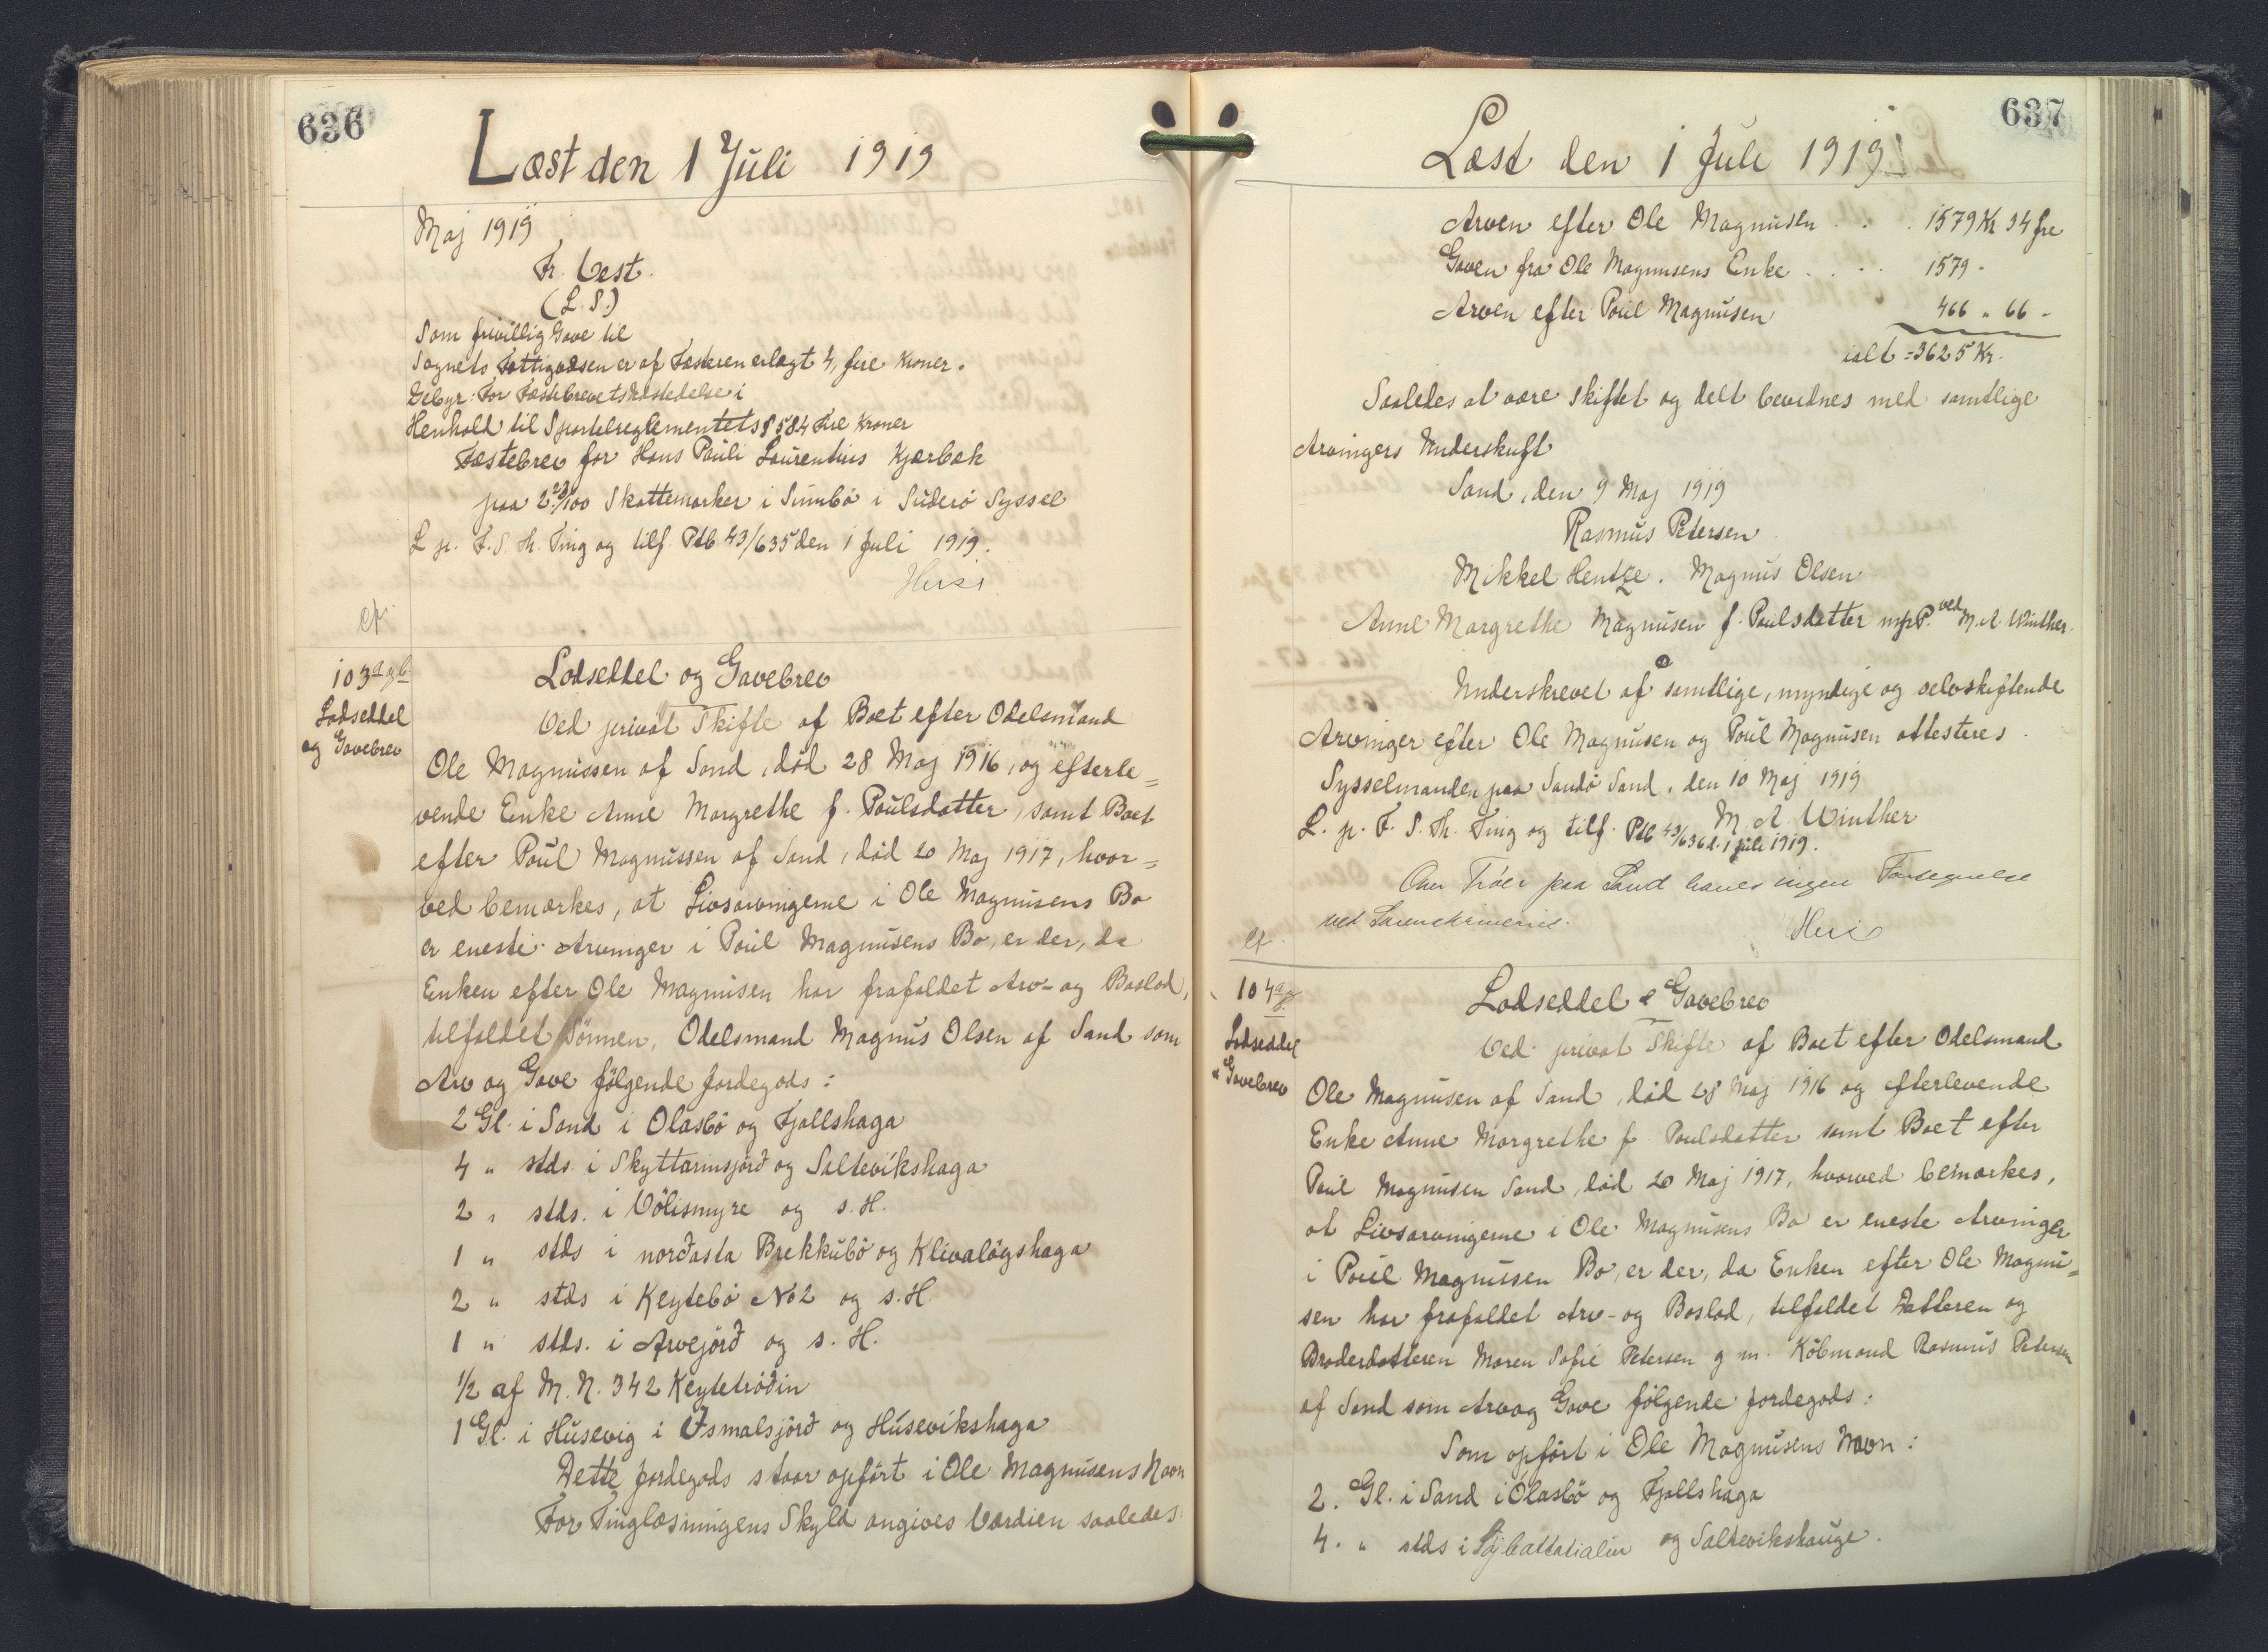 636
Læst den 1 Juli 1919
Maj 1919
Fr. Vest.
(L. S.)
Som frivillig Gave til
Sognets Fattigvæsen er af Fæsteren erlagt 4, fire Kroner.
Gebyr: For Fæstebrevets Udstedelse i
Henhold til Sportelreglementets § 58 4 Fire Kroner
Fæstebrev for Hans Pauli Laurentius Kjærbæk
paa 2 23/100 Skattemarker i Sumbø i Suderø Syssel
L. p. F. S. Th. Ting og tilf. Ptb 43/635 den 1 Juli 1919.
103 a og b
Lodseddel
og Gavebrev
Lodseddel og Gavebrev
Ved privat Skifte af Boet efter Odelsmand
Ole Magnussen af Sand, död 28 Maj 1916, og efterle=
vende Enke Anne Margrethe f. Poulsdatter, samt Boet
efter Poul Magnussen af Sand, död 20 Maj 1917, hvor=
ved bemærkes, at Livsarvingerne i Ole Magnusens Bo
er eneste Arvinger i Poul Magnusens Bo, er der, da
Enken efter Ole Magnusen har frafaldet Arv- og Boslod,
tilfaldet Sönnen, Odelsmand Magnus Olsen af Sand som
Arv og Gave fölgende Jordegods:
2 Gl. i Sand i Olasbö og Fjallshaga
4 " stds. i Skyttarnsjörð og Saltevíkshaga
2 " stds. i Völismyre og s. H.
1 " stds i norðasta Brekkubö og Klivalögshaga
2 " stds i Keytebö No 2 og s. H.
1 " stds. i Arvejörð og s. H.
1/2 af M. N. 342 Keytetröðin
1 Gl. i Húsevig i Ósmalsjörð og Húsevíkshaga
Dette Jordegods staar opfört i Ole Magnusens Navn
For Tinglæsningens Skyld angives Værdien saaledes:
637
Læst den 1 Juli 1919
Arven efter Ole Magnusen . . . 1579 Kr 34 Øre
Gaven fra Ole Magnusens Enke . . . . 1579 -
Arven efter Poul Magnusen 466 " 66 -
ialt = 3625 Kr.
Saaledes at være skiftet og delt bevidnes med samtlige
Arvingers Underskrift
Sand, den 9 Maj 1919
Rasmus Petersen
Mikkel Hentze. Magnus Olsen
Anne Margrethe Magnusen f. Poulsdatter m. f. P. ved M. A. Winther.
Underskrevet af samtlige, myndige og selvskiftende
Arvinger efter Ole Magnusen og Poul Magnusen attesteres.
Sysselmanden paa Sandö Sand, den 10 Maj 1919
M. A. Winther
L. p. F. S. Th. Ting og tilf. Ptb 43/636 d. 1 Juli 1919.
paa Sand haves ingen
104 a og b.
Lodseddel
& Gavebrev
Lodseddel & Gavebrev
Ved privat Skifte af Boet efter Odelsmand
Ole Magnusen af Sand, död 28 Maj 1916 og efterlevende
Enke Anne Margrethe f. Poulsdatter samt Boet efter
Poul Magnusen Sand, död 20 Maj 1917, hvorved bemærkes,
at Livsarvingerne i Ole Magnusens Bo er eneste Arvinger
i Poul Magnusen Bo, er der, da Enken efter Ole Magnu=
sen har frafaldet Arv- og Boslod, tilfaldet Datteren og
Broderdatteren Maren Sofie Petersen g. m. Köbmand Rasmus Petersen
af Sand som Arv og Gave fölgende Jordegods:
Som opfört i Ole Magnusens Navn:
2. Gl. i Sand i Olasbö og Fjallshaga
4. " stds i og Saltevikshauge.